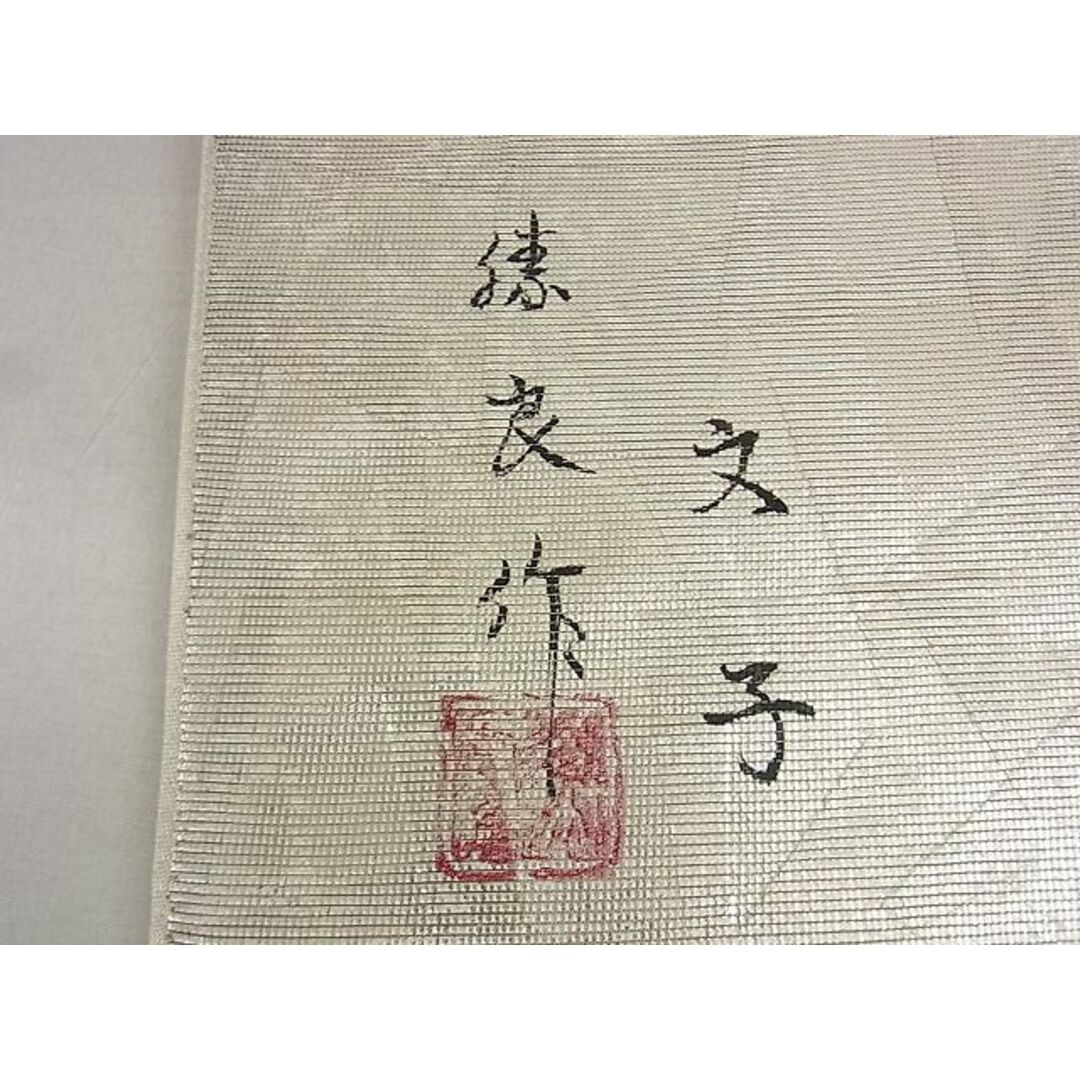 文子
勝良作